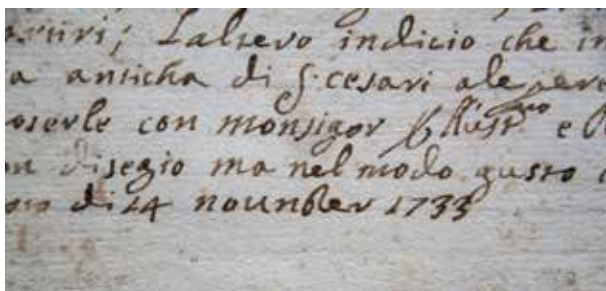 Lalsevo indicio che in
a anticha di S. cesari ale
oserle con monsigor Illust.mo e
disegio ma nel modo gusto
di 24 nounber 1733